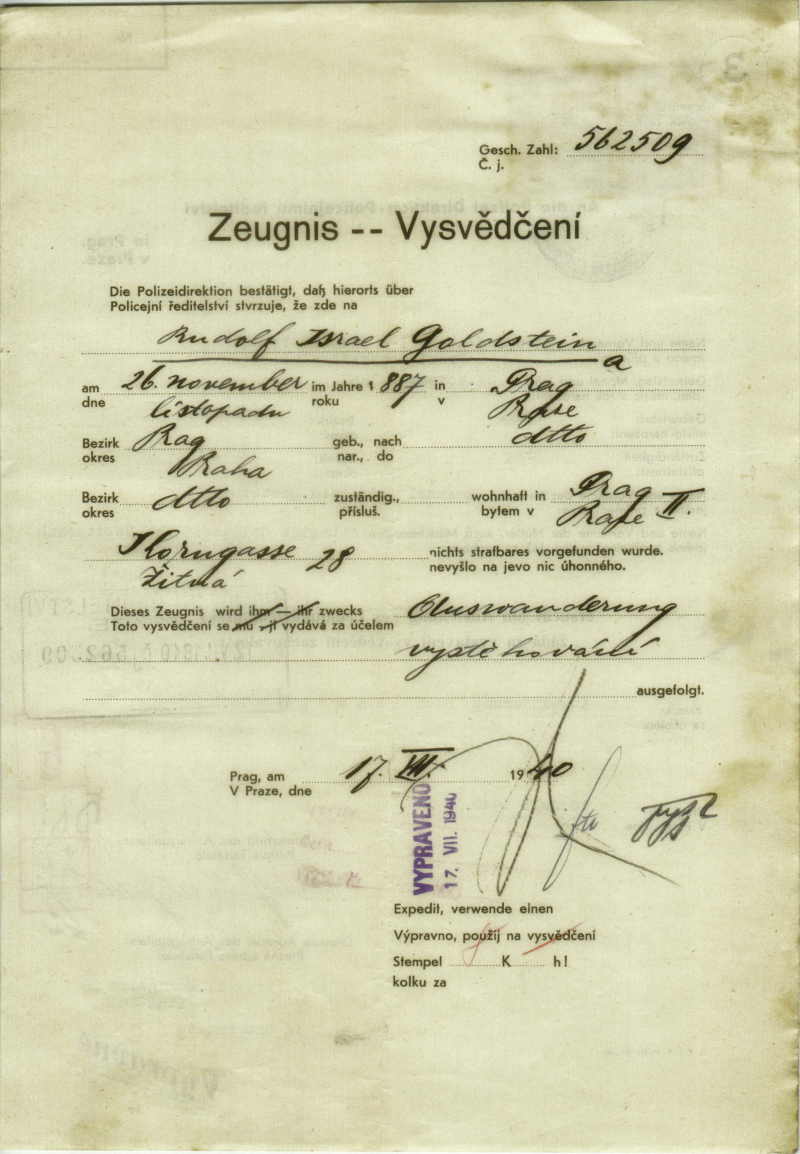 Gesch. Zahl: 562509
Č. j.
Zeugnis -- Vysvědčení
Die Polizeidirektion bestätigt, daß hierorts über
Policejní ředitelství stvrzuje, že zde na
Rudolf Israel Goldstein
a
am 26. november im Jahre 1887 in Prag
dne listopadu roku v Praze
Bezirk Prag geb., nach dtto
okres Praha nar., do
Bezirk dtto zuständig., wohnhaft in Prag II.
okres přísluš. bytem v Praze
Korngasse 28 nichts strafbares vorgefunden wurde.
Žitná nevyšlo na jevo nic úhonného.
Dieses Zeugnis wird ihm — ihr zwecks Auswanderung
Toto vysvědčení se mu - jí vydává za účelem
vystěhování
ausgefolgt.
Prag, am 17. VII. 1940
V Praze, dne
VYPRAVENO
17. VII. 1940
Expedit, verwende einen
Výpravno, použij na vysvědčení
Stempel K h!
kolku za